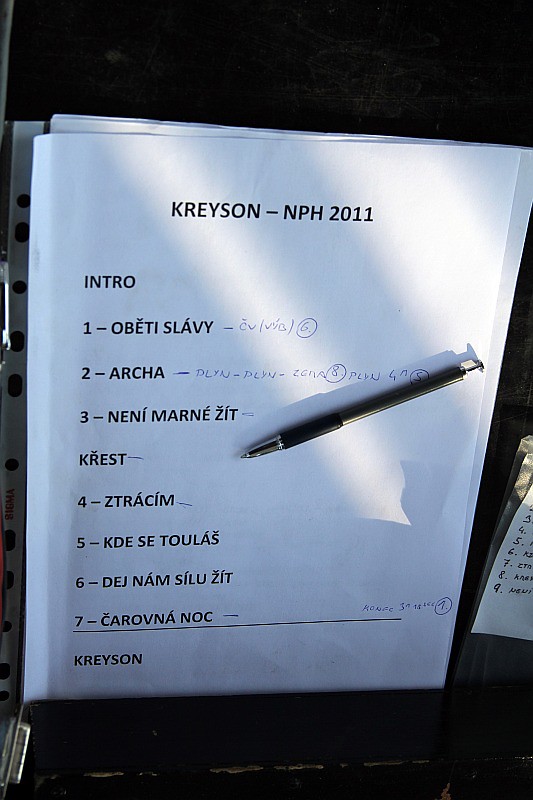 KREYSON – NPH 2011
INTRO
1 – OBĚTI SLÁVY – ČV (VÝB) 6.
2 – ARCHA – PLYN – PLYN – ZEMA 8. PLYN 4 5
3 – NENÍ MARNÉ ŽÍT –
KŘEST –
4 – ZTRÁCÍM –
5 – KDE SE TOULÁŠ
6 – DEJ NÁM SÍLU ŽÍT
7 – ČAROVNÁ NOC – KONEC 1.
KREYSON
SIGMA
4.
5.
6.
7.
8.
9. NENÍ